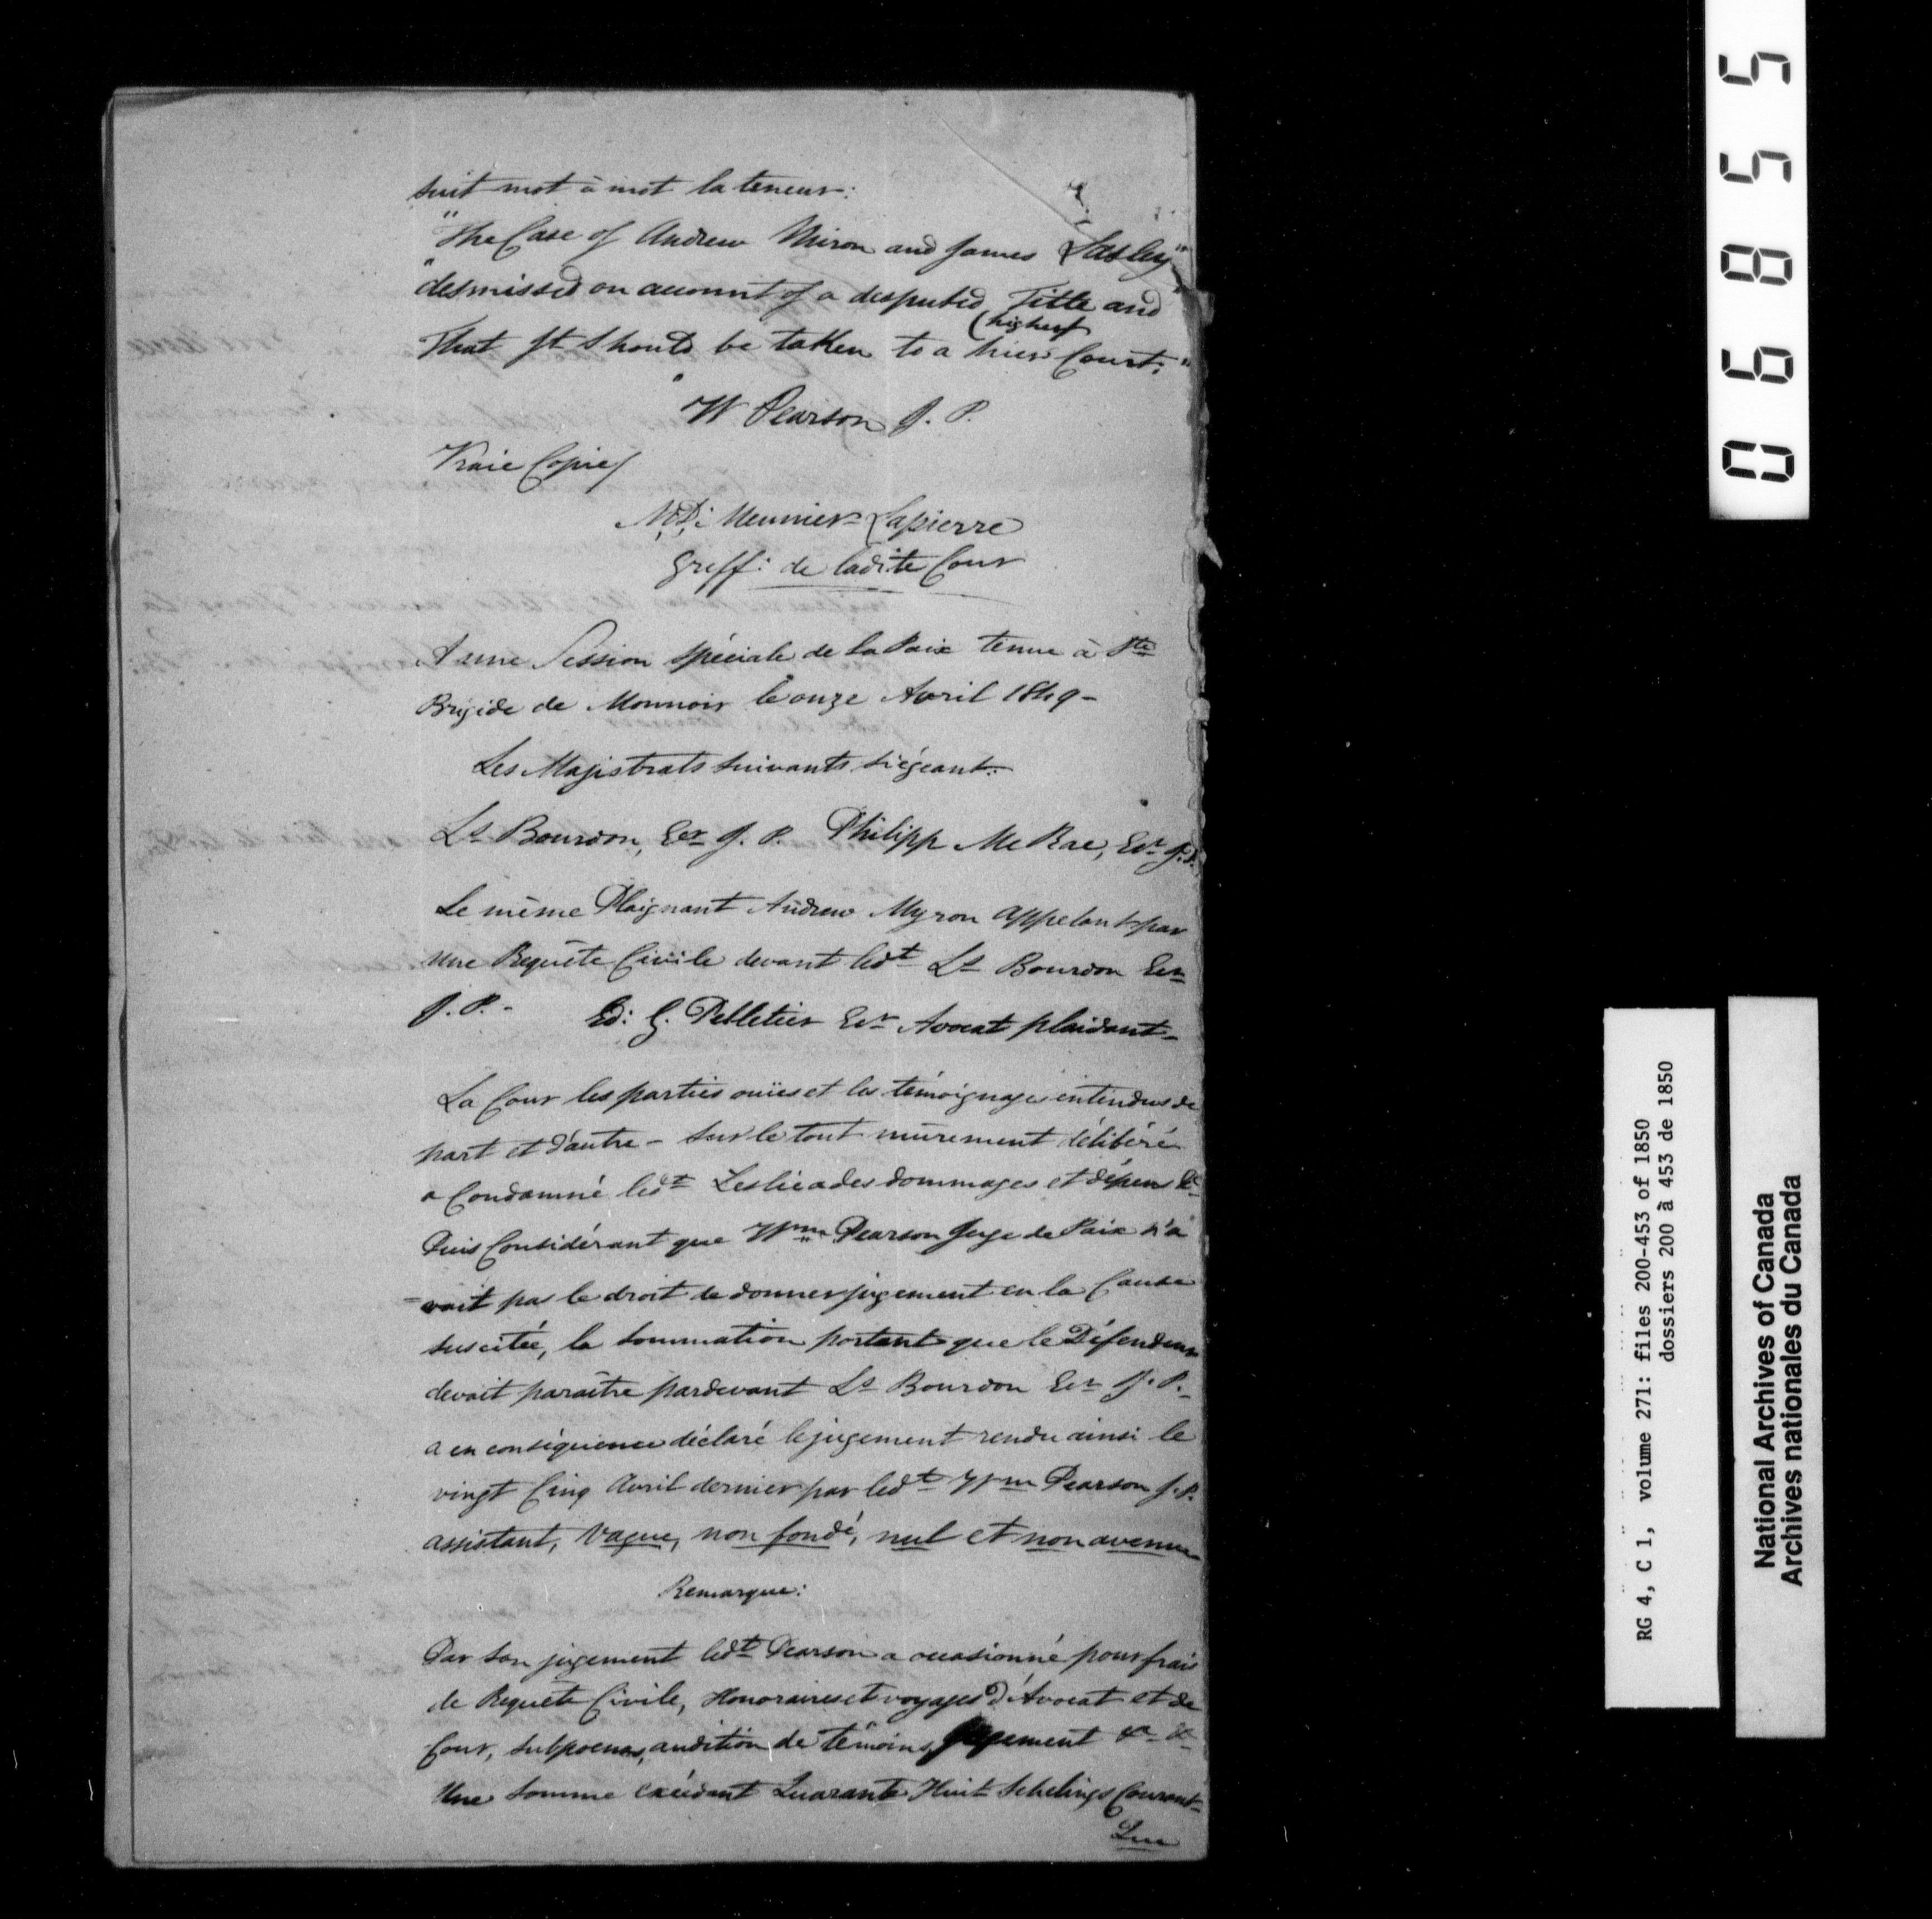 suit mot à mot la teneur:
"The Case of Andrew Miron and James Lasley"
"desmissed on account of a desputed Title and
(higher)
That It Should be taken to a hier Court."
"W Pearson J. P.
Vraie Copie/
M.D: Meunier Lapierre
Greff: de ladite Cour
A une Session spéciale de la Paix tenue à Ste
Brigide de Monnoir le onze Avril 1849 -
Les Magistrats suivants siégeant:
Ls Bourdon, Ecr J. P. Philipp Mc Rae, Ecr J.P.
Le même Plaignant Andrew Myron appelant par
Une Requête Civile devant ledt Ls Bourdon Ecr
J. P. - Ed: G. Pelletier Ecr Avocat plaidant -
La Cour les parties ouïes et les témoignages entendus de
part et d'autre - sur le tout mûrement délibéré
a Condamné ledt Leslie a des dommages et dépens &c
Puis Considérant que Wm Pearson Juge de Paix n'a
=vait pas le droit de donner jugement en la Cause
suscitée, la Sommation portant que le Défendeur
devait paraître pardevant Ls Bourdon Ecr J. P. -
a en conséquence déclaré le jugement rendu ainsi le
vingt Cinq Avril dernier par ledt Wm Pearson J. P.
assistant, vague, non fondé, nul et non avenu
Remarque:
Par son jugement ledt Pearson a occasionné pour frais
de Requête Civile, Honoraires et voyages d'Avocat et de
Cour, subpoenas, audition de témoins, jugement &c &c
Une Somme excédant Quarante Huit Schelings Courant -
Que
06855
RG 4, C 1, volume 271: files 200-453 of 1850
dossiers 200 à 453 de 1850
National Archives of Canada
Archives nationales du Canada